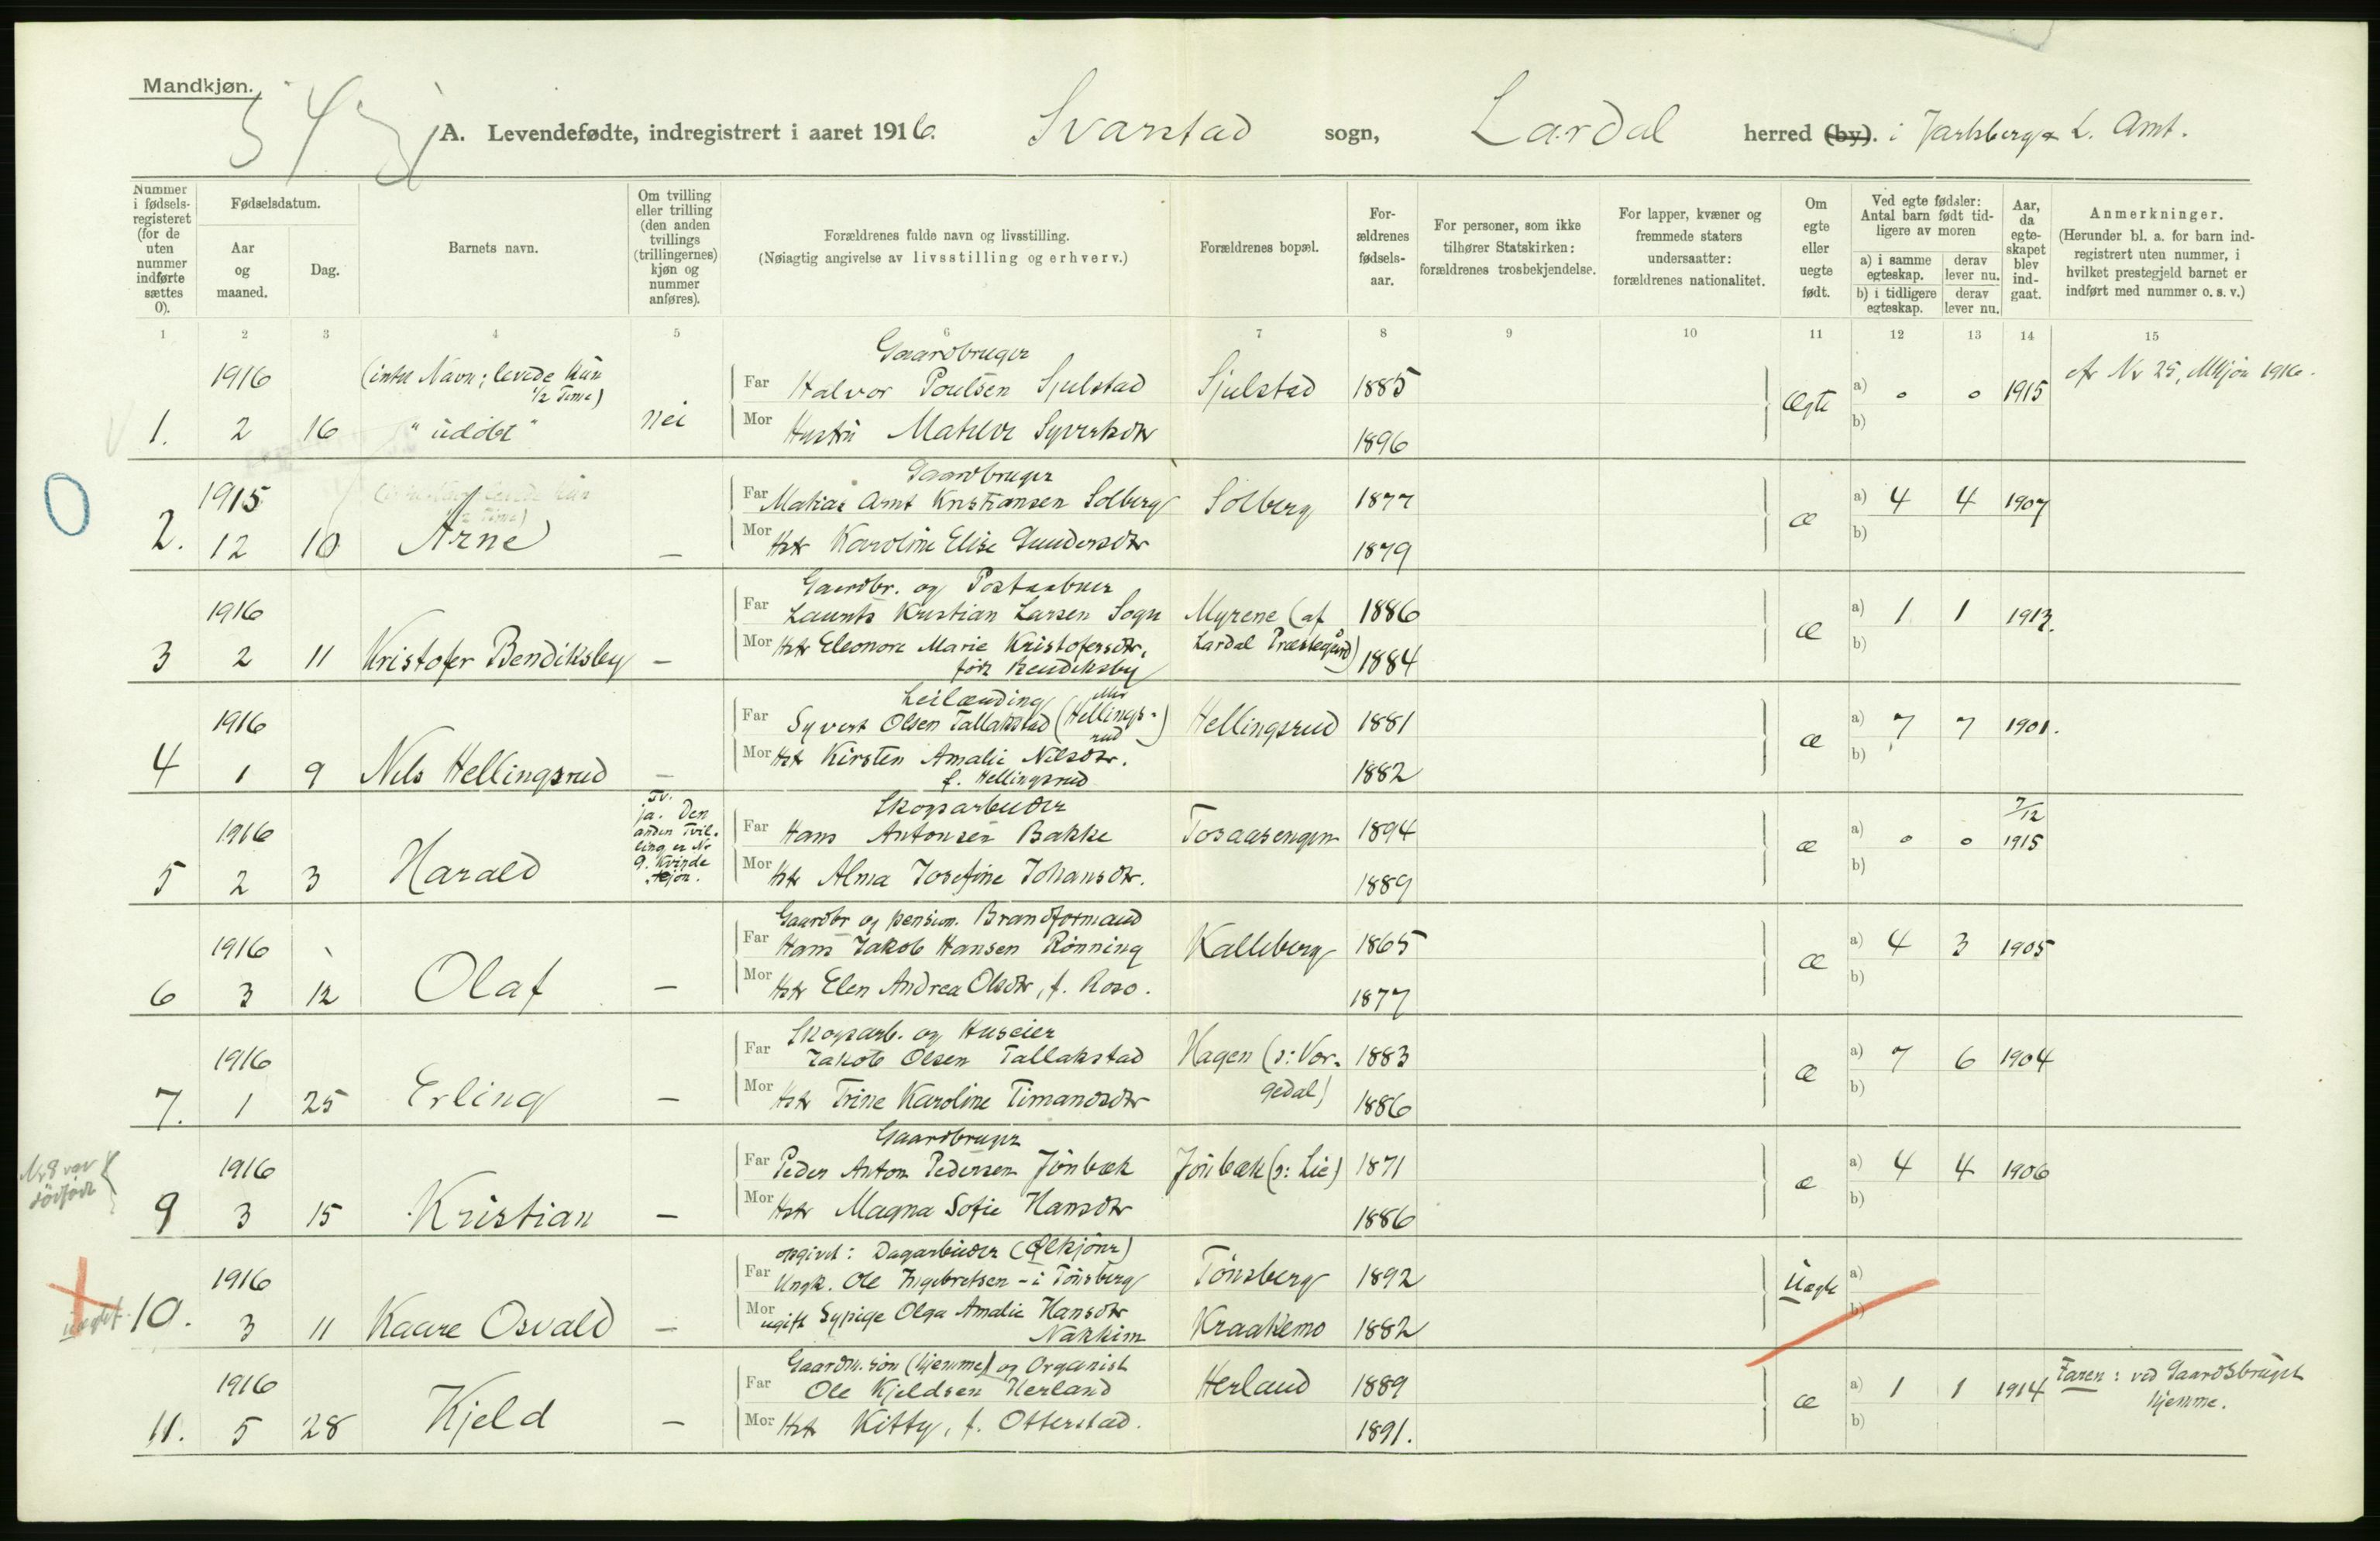 Mandkjøn.
A. Levendefødte, indregistrert i aaret 1916. Svarstad sogn, Lardal herred (by). i Jarlsberg & L. Amt.
Nummer i fødsels-registeret (for de uten nummer indførte sættes 0).
Fødselsdatum.
Aar og maaned.
Dag.
Barnets navn.
Om tvilling eller trilling (den anden tvillings (trillingernes) kjøn og nummer anføres).
Forældrenes fulde navn og livsstilling.
(Nøiagtig angivelse av livsstilling og erhverv.)
Forældrenes bopæl.
For-ældrenes fødsels-aar.
For personer, som ikke tilhører Statskirken: forældrenes trosbekjendelse.
For lapper, kvæner og fremmede staters undersaatter: forældrenes nationalitet.
Om egte eller uegte født.
Ved egte fødsler: Antal barn født tid-ligere av moren
a) i samme egteskap. derav lever nu.
b) i tidligere egteskap. derav lever nu.
Aar, da egte-skapet blev ind-gaat.
Anmerkninger.
(Herunder bl. a. for barn ind-registrert uten nummer, i hvilket prestegjeld barnet er indført med nummer o. s. v.)
1 2 3 4 5 6 7 8 9 10 11 12 13 14 15
Gaardbruger
1916 (intet Navn; levede kun ½ Time) Far Halvor Poulsen Sjulstad Sjulstad 1885 a) 0 0 1915 cfr Nr 25, Mkjøn 1916.
1. 2 16 "udøbt" Nei Mor Hustru Mathilde Syversdtr 1896 Ægte b)
Gaardbruger
1915 Far Matias Arnt Kristiansen Solberg Solberg 1877 a) 4 4 1907
2. 12 10 Arne — Mor Hstr Karoline Elise Gundersdtr 1879 æ b)
Gaardbr. og Postaabner
1916 Far Laurits Kristian Larsen Sogn Myrene (af 1886 a) 1 1 1913.
3 2 11 Kristofer Bendiksby — Mor Hstr Eleonora Marie Kristofersdtr, Lardal Præstegård) 1884 æ b)
født Bendiksby
Leilænding
1916 Far Syvert Olsen Tallakstad (eller Hellings-rud) Hellingsrud 1881 a) 7 7 1901.
4 1 9 Nils Hellingsrud — Mor Hstr Kirsten Amalie Nilsdtr. 1882 æ b)
f. Hellingsrud
Tv. ja. Den anden Tvil-ling er Nr 9. Kvinde-kjøn.
Skogsarbeider 7/12
1916 Far Hans Antonsen Bakke Tosaasengen 1894 a) 0 0 1915
5 2 3 Harald Mor Hstr Alma Josefine Johansdtr. 1889 æ b)
Gaardbr og pension. Brandformand
1916 Far Hans Jakob Hansen Rönning Kalleberg 1865 a) 4 3 1905
6 3 12 Olaf — Mor Hstr Elen Andrea Olsdtr, f. Roso. 1877 æ b)
Skogsarb. og Huseier
1916 Far Jakob Olsen Tallakstad Hagen (s: Vor- 1883 a) 7 6 1904
7. 1 25 Erling — Mor Hstr Trine Karoline Timandsdtr gedal) 1886 æ b)
Nr 8 var dödfödt
Gaardbruger
1916 Far Peder Anton Pedersen Jönbæk Jönbæk (s: Lie) 1871 a) 4 4 1906
9 3 15 Kristian — Mor Hstr Magna Sofie Hansdtr 1886 æ b)
opgivet: Dagarbeider (Ölkjörer)
1916 Far Ungk. Ole Ingebretsen – i Tönsberg Tönsberg 1892 a)
uegte 10. 3 11 Kaare Osvald — Mor ugift Sypige Olga Amalie Hansdtr Nakkim Kraakemo 1882 Uegte b)
Gaardm. sön (hjemme) og Organist
1916 Far Ole Kjeldsen Herland Herland 1889 a) 1 1 1914 Faren: ved Gaardsbruget hjemme.
11. 5 28 Kjeld — Mor Hstr Kitty, f. Otterstad. 1891. æ b)